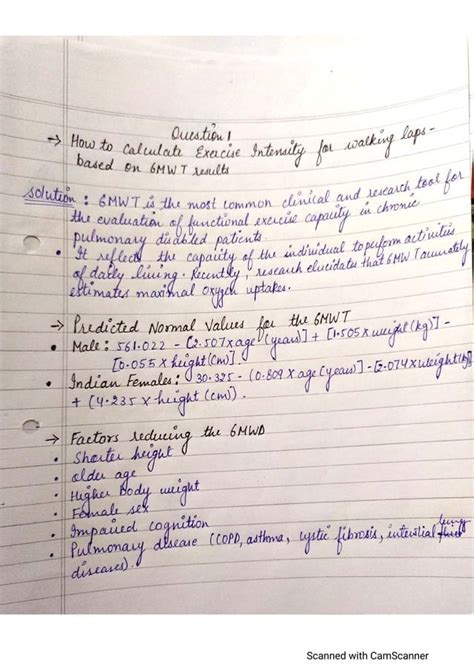 Question 1
→ How to calculate Exercise Intensity for walking laps-
based on 6MWT results
Solution : 6MWT is the most common clinical and research tool for
the evaluation of functional exercise capacity in chronic
pulmonary disabled patients.
• It reflects the capacity of the individual to perform activities
of daily living. Recently, research elucidates that 6MWT accurately
estimates maximal oxygen uptakes.
→ Predicted Normal Values for the 6MWT
• Male: 561.022 - [2.507 x age (years)] + [1.505 x weight (kg)] -
[0.055 x height (cm)]
• Indian Females: 30.325 - (0.809 x age (years)] - [2.074 x weight (kg)]
+ (4.235 x height (cm)).
→ Factors reducing the 6MWD
• Shorter height
• older age
• Higher body weight
• Female sex
• Impaired cognition
• Pulmonary disease (COPD, asthma, cystic fibrosis, interstitial lung
diseases)
Scanned with CamScanner